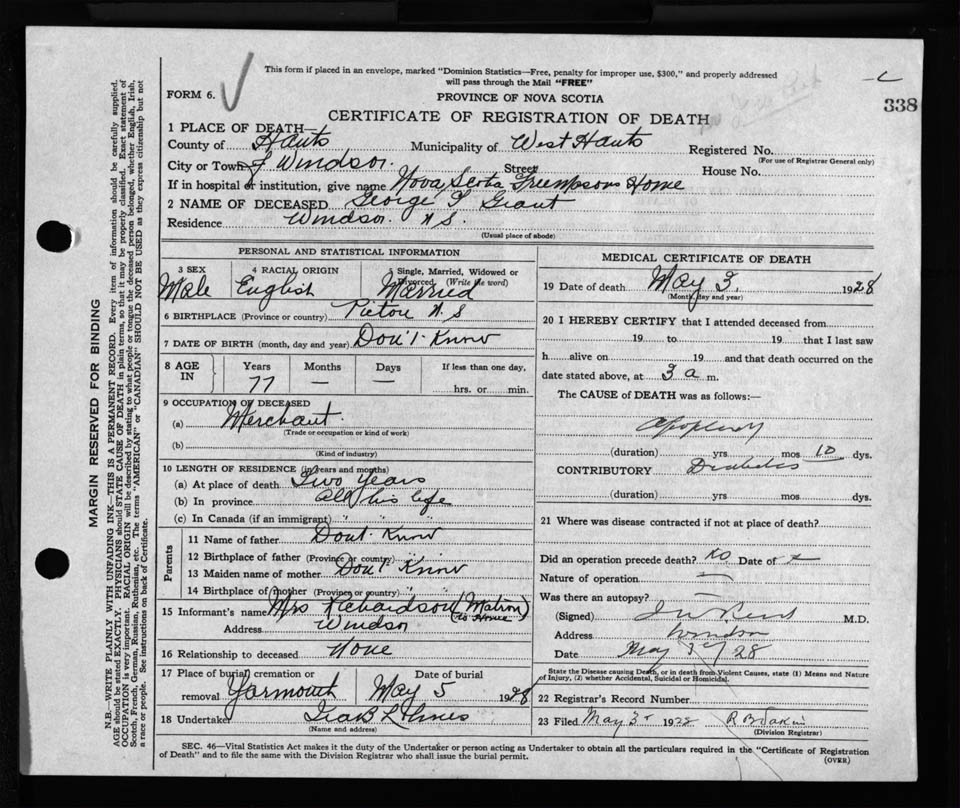 This form if placed in an envelope, marked "Dominion Statistics—Free, penalty for improper use, $300," and properly addressed
will pass through the Mail "FREE"
FORM 6.
PROVINCE OF NOVA SCOTIA
338
CERTIFICATE OF REGISTRATION OF DEATH
1 PLACE OF DEATH—
County of Hants Municipality of West Hants Registered No.
(For use of Registrar General only)
City or Town of Windsor. Street House No.
If in hospital or institution, give name Nova Scotia Home
2 NAME OF DECEASED George Grant
Residence Windsor N.S.
(Usual place of abode)
PERSONAL AND STATISTICAL INFORMATION
3 SEX Male
4 RACIAL ORIGIN English
5 Single, Married, Widowed or Divorced. (Write the word) Married
6 BIRTHPLACE (Province or country) Pictou N.S
7 DATE OF BIRTH (month, day and year) Don't Know
8 AGE IN Years Months Days If less than one day,
77 — — hrs. or min.
9 OCCUPATION OF DECEASED
(a) Merchant
(Trade or occupation or kind of work)
(b)
(Kind of industry)
10 LENGTH OF RESIDENCE (in years and months)
(a) At place of death Two Years
(b) In province All his life
(c) In Canada (if an immigrant) " " "
Parents
11 Name of father Dont Know
12 Birthplace of father (Province or country) " "
13 Maiden name of mother Don't Know
14 Birthplace of mother (Province or country) " "
15 Informant's name Mrs Richardson (Matron to Home)
Address Windsor
16 Relationship to deceased None
17 Place of burial cremation or removal Yarmouth Date of burial May 5 1928
18 Undertaker
(Name and address)
MEDICAL CERTIFICATE OF DEATH
19 Date of death May 3. 1928
(Month, day and year)
20 I HEREBY CERTIFY that I attended deceased from
19 to 19 that I last saw
h alive on 19 and that death occurred on the
date stated above, at 3 a m.
The CAUSE of DEATH was as follows:—
Apoplexy
(duration) yrs mos 10 dys.
CONTRIBUTORY Diabetes
(duration) yrs mos dys.
21 Where was disease contracted if not at place of death?
Did an operation precede death? No Date of
Nature of operation —
Was there an autopsy? —
(Signed) M.D.
Address Windsor
Date May 3 / 28
State the Disease causing Death, or in death from Violent Causes, state (1) Means and Nature of Injury, (2) whether Accidental, Suicidal or Homicidal.
22 Registrar's Record Number
23 Filed May 3 1928
(Division Registrar)
SEC. 46—Vital Statistics Act makes it the duty of the Undertaker or person acting as Undertaker to obtain all the particulars required in the "Certificate of Registration
of Death" and to file the same with the Division Registrar who shall issue the burial permit.
(OVER)
MARGIN RESERVED FOR BINDING
N.B.—WRITE PLAINLY WITH UNFADING INK—THIS IS A PERMANENT RECORD. Every item of information should be carefully supplied.
AGE should be stated EXACTLY. PHYSICIANS should STATE CAUSE OF DEATH in plain terms, so that it may be properly classified. Exact statement of
OCCUPATION is very important. RACIAL ORIGIN will be described by stating to what people or tongue the deceased person belonged, whether English, Irish,
Scotch, French, German, Russian, Ruthenian, etc. The terms "AMERICAN" or "CANADIAN" SHOULD NOT BE USED as they express citizenship but not
a race or people. See instructions on back of Certificate.